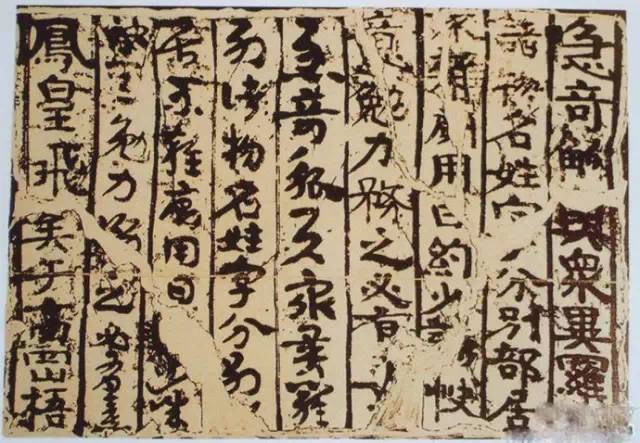 急奇觚與衆異羅
諸物名姓字分別部居
雜廁用日約少誠快
意勉力務之必有
急奇觚與衆異羅
列諸物名姓字分別
居不雜廁用日誠
意勉力務之必有憙
鳳皇飛矣于高岡梧